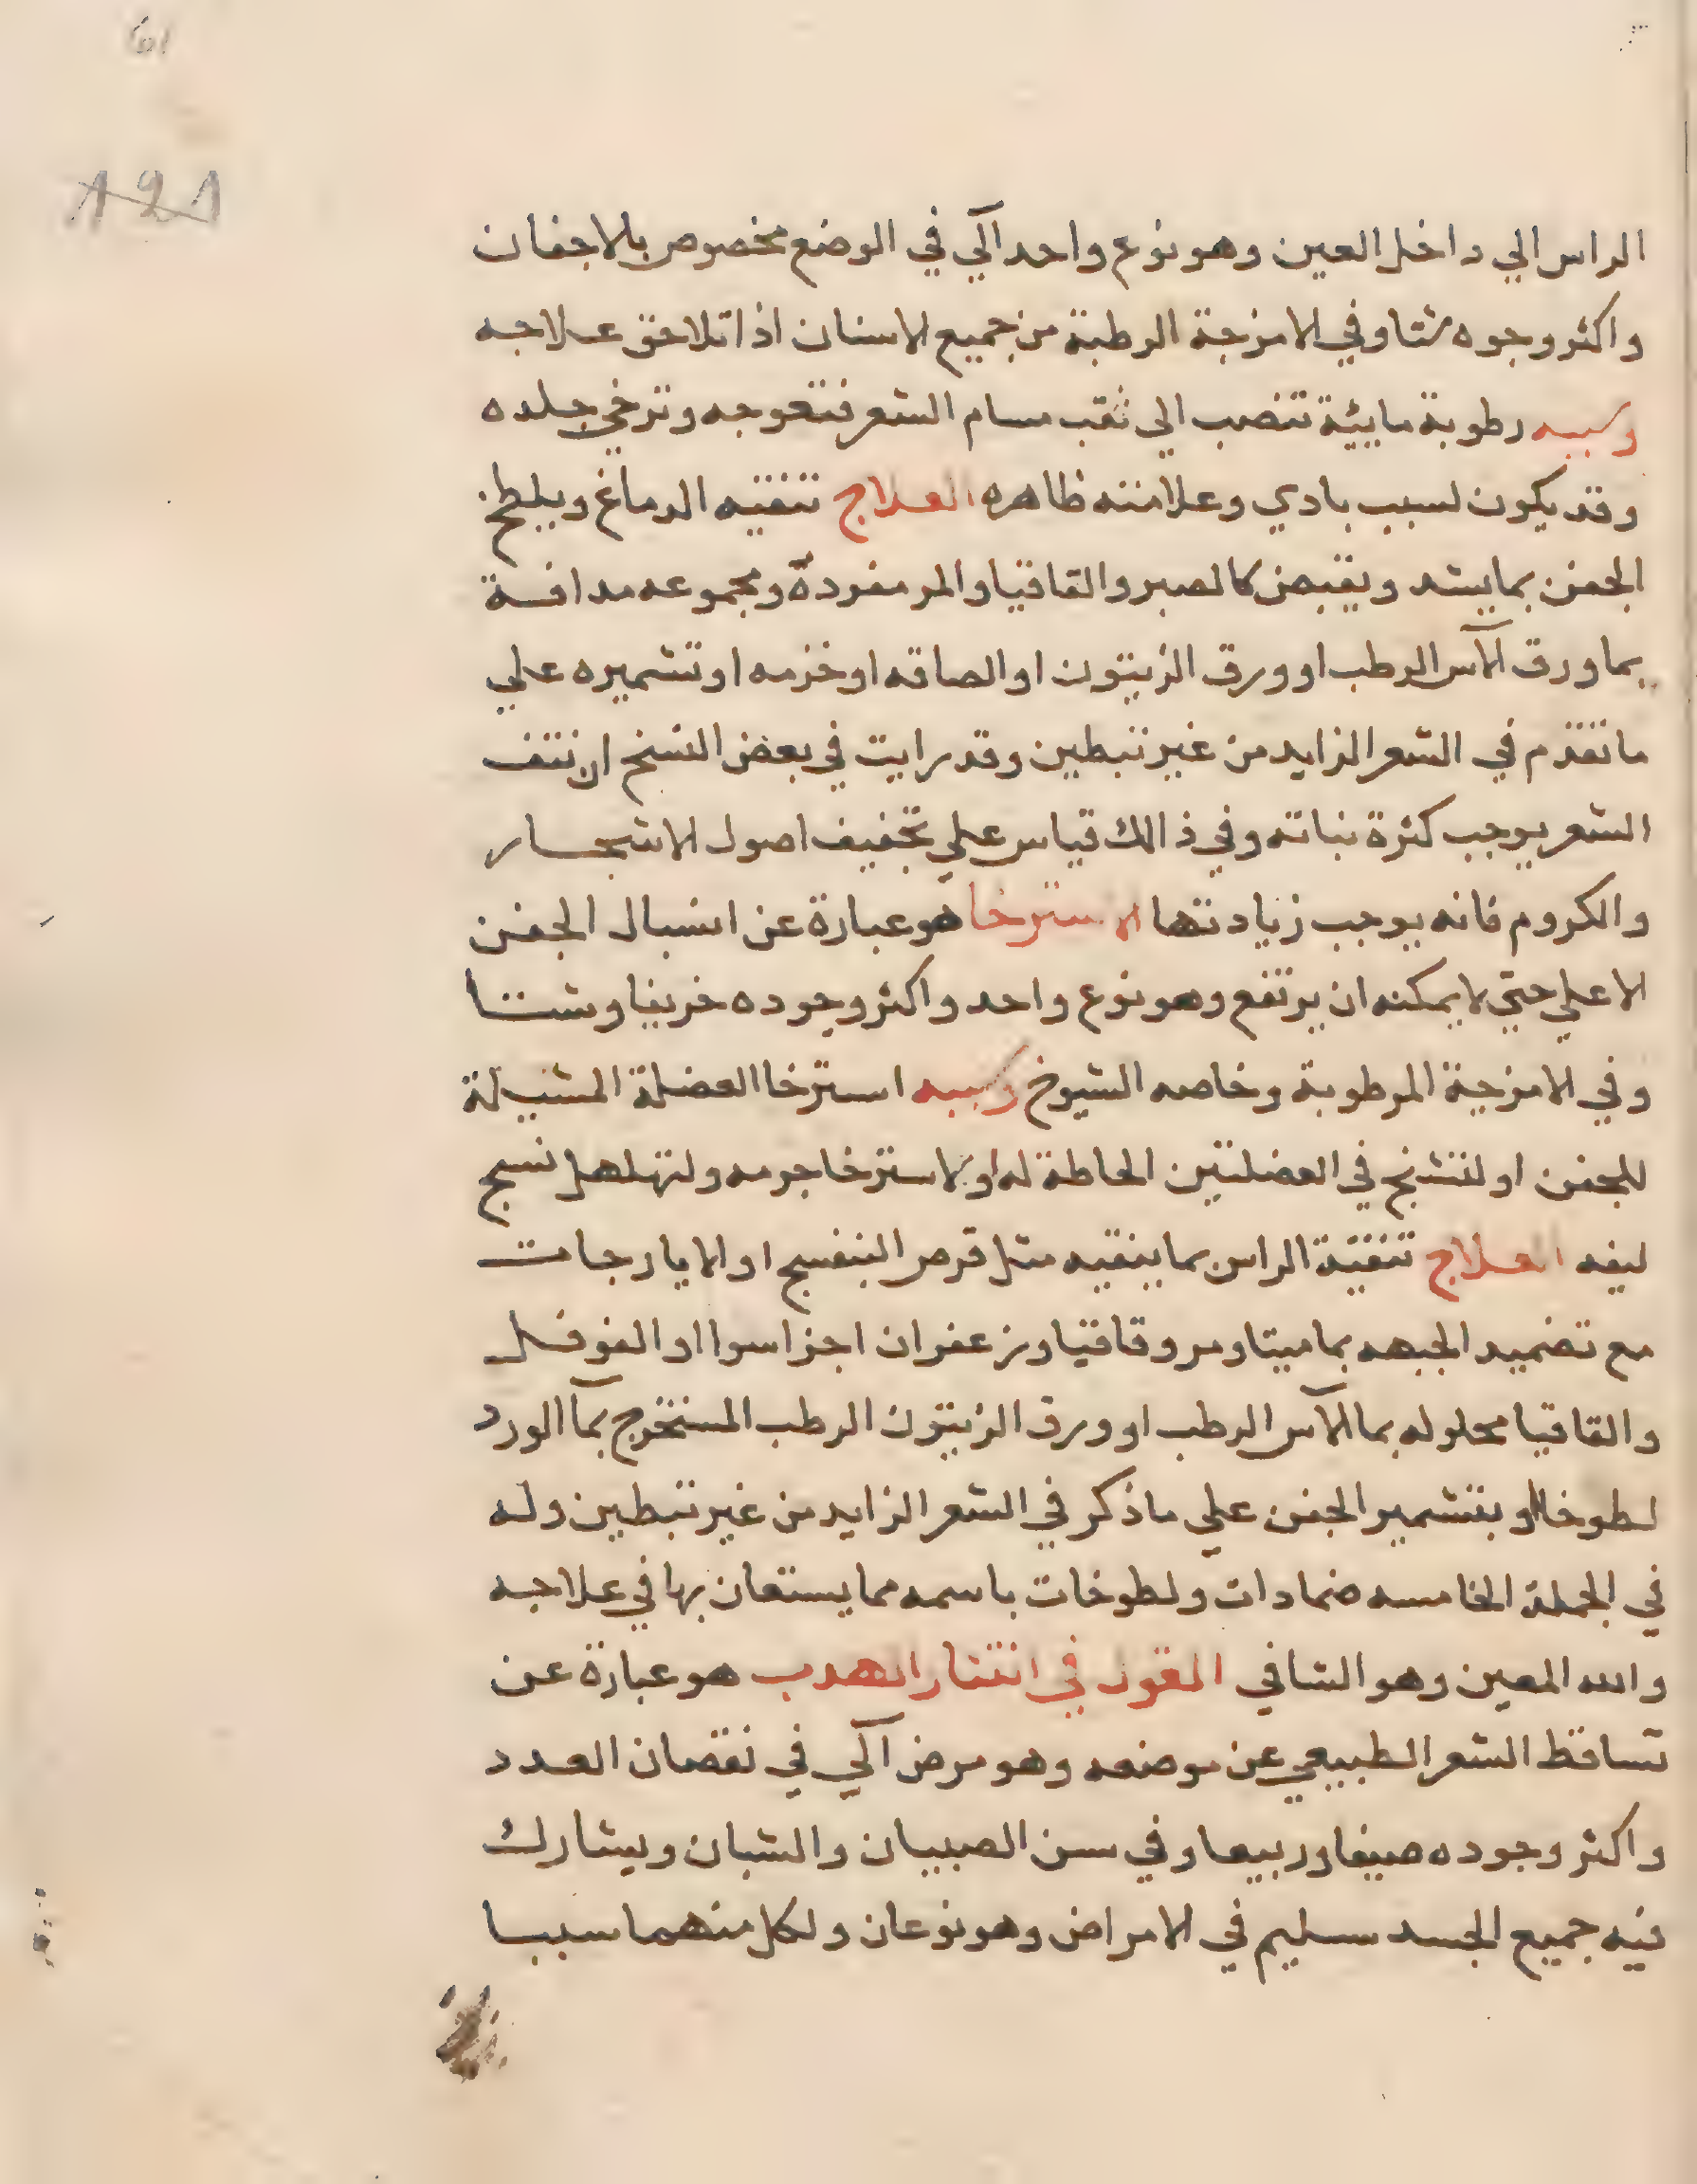 الراس الي داخل العين وهو نوع واحد آلي في الوضع مخصوص بالاجفان
واكثر وجوه شتا وفي الامزجة الرطبة من جميع الاسنان اذا تلاحق علاجه
وسببه رطوبة مايئة تنصب الى ثقب مسام الشعر فتعوجه وترخي جلده
وقد يكون لسبب بادي وعلامته ظاهره العلاج تنقيه الدماغ ويلطخ
الجفن بما يشد ويقبض كالصبر والقاقيا والمر مفردة ومجموعه مدافة
بماورق الآس الرطب او ورق الزيتون او الصاقه او خزمه او تشميره علي
ما تقدم في الشعر الزايد من غير تبطين وقد رايت في بعض النسخ ان نتف
الشعر يوجب كثرة نباته وفي ذالك قياس علي تخفيف اصول الاشجار
والكروم فانه يوجب زيادتها الاسترخا هو عبارة عن انسبال الجفن
الاعلي حتي لا يمكنه ان يرتفع وهو نوع واحد واكثر وجوده خريفا وشتا
وفي الامزجة المرطوبة وخاصه الشيوخ وسببه استرخا العضلة المشيلة
للجفن او لتشنج في العضلتين الحاطة له او لاسترخا جرمه ولتهلهل نسج
ليفه العلاج تنقية الراس بما ينقيه مثل قرص البنفسج او الايارجات
مع تضميد الجبهه بماميتا ومر وقاقيا وزعفران اجزا سوا او الفوفل
والقاقيا محلوله بما الآس الرطب او ورق الزيتون الرطب المستخرج بمآ الورد
لطوخا او بتشمير الجفن علي ما ذكر في الشعر الزايد من غير تبطين وله
في الجملة الخامسه ضمادات ولطوخات باسمه مما يستعان بها في علاجه
والله المعين وهو الشافي القول في انتثار الهدب هو عبارة عن
تساقط الشعر الطبيعي عن موضعه وهو مرض آلي في نقصان العدد
واكثر وجوده صيفا وربيعا وفي سن الصبيان والشبان ويشارك
فيه جميع الجسد سليم في الامراض وهو نوعان ولكل منهما سببا